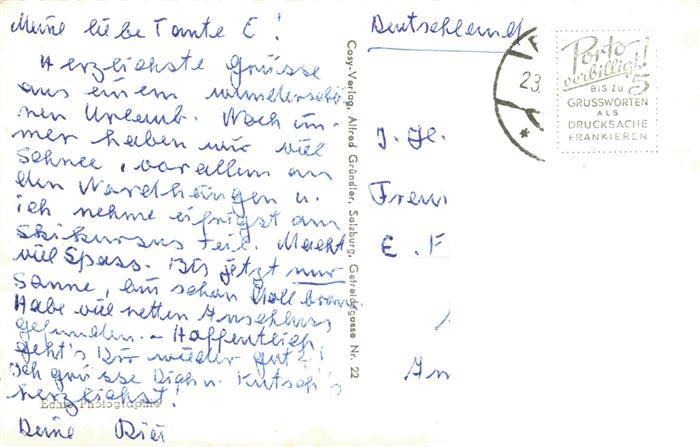 Meine liebe Tante E!
Herzlichste Grüsse
aus einem wunderschö
nen Urlaub. Noch im-
mer haben wir viel
Schnee, vor allem an
den Nordhängen u.
ich nehme eifrigst am
Skikursus teil. Macht
viel Spass. Bis jetzt nur
Sonne, bin schon toll braun
Habe viel netten Anschluss
gefunden. - Hoffentlich
geht's Dir wieder gut?!
Ich grüsse Dich u.
herzlichst!
Deine
Echte Photographie
Cosy-Verlag, Alfred Gründler, Salzburg, Getreidegasse Nr. 22
Deutschland
23.
Porto
verbilligt!
5
BIS ZU
GRUSSWORTEN
ALS
DRUCKSACHE
FRANKIEREN
E. F